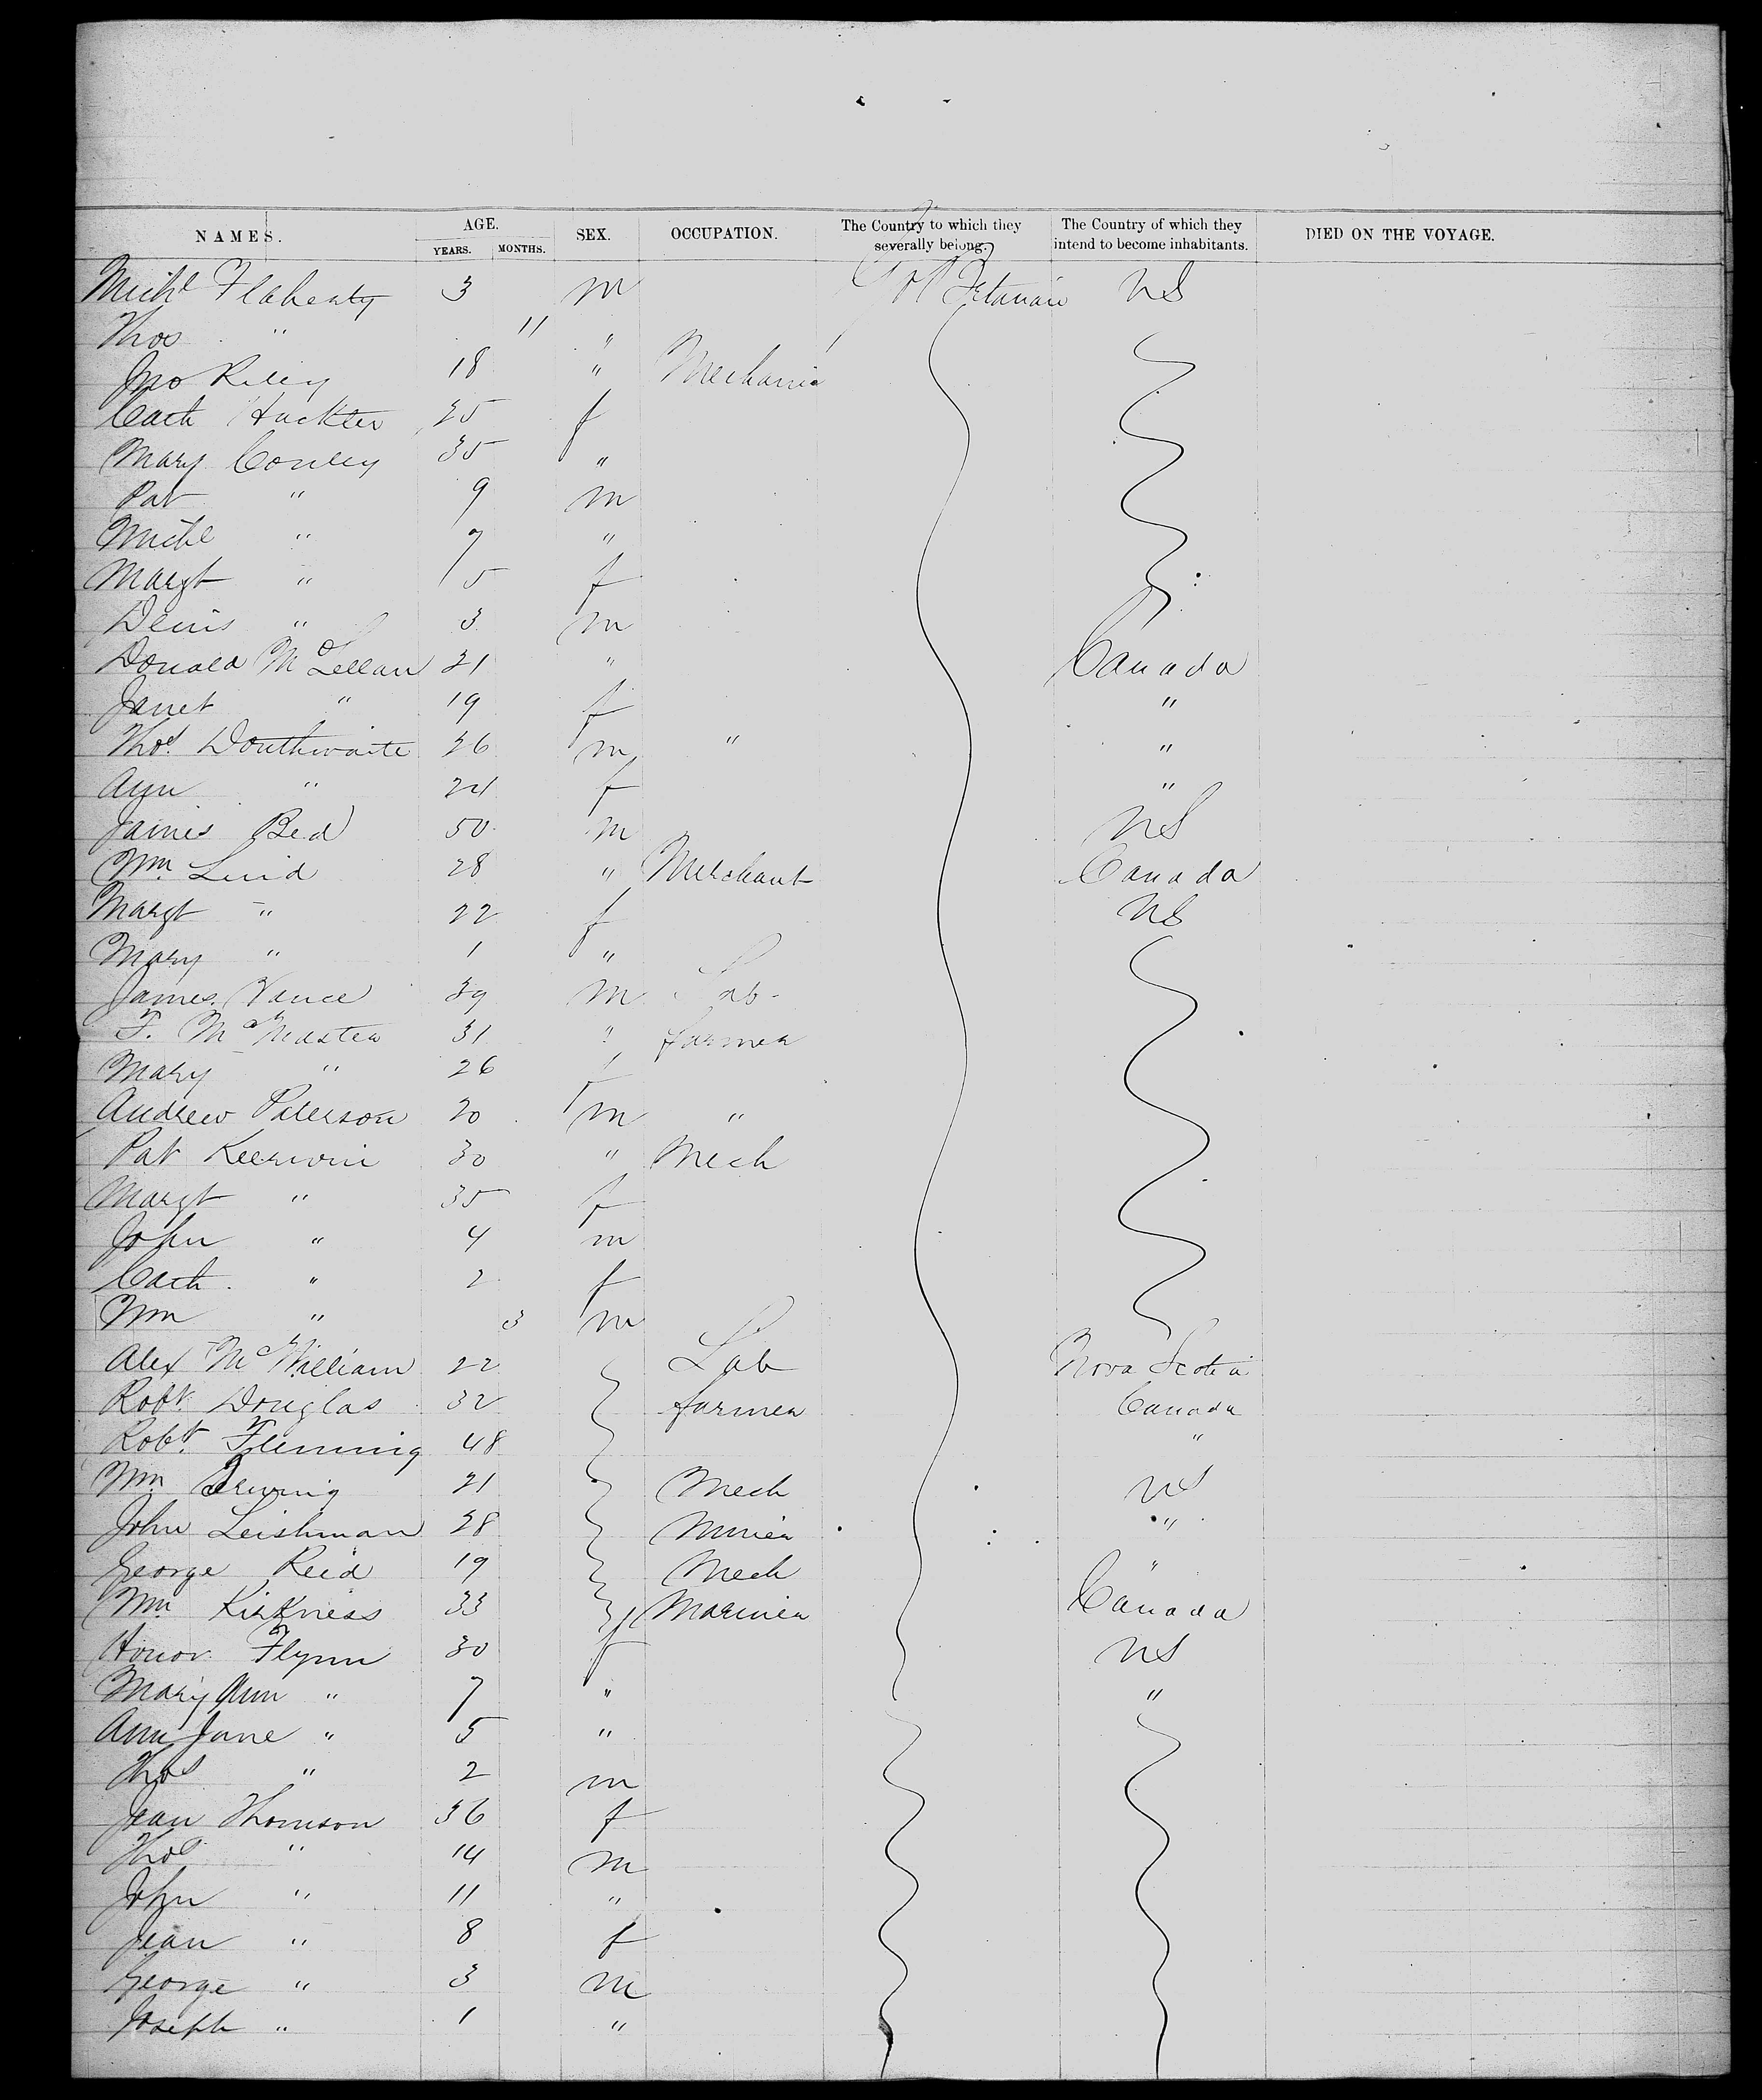 NAMES. AGE. SEX. OCCUPATION. The Country to which they severally belong. The Country of which they intend to become inhabitants. DIED ON THE VOYAGE.
YEARS. MONTHS.
Michl Flaherty 3 m Gt Britain US
Thos " 11 "
Jno Riley 18 " Mechanic
Cath 25 f
Mary Conley 35 "
Pat " 9 m
Michl " 7 "
Margt " 5 f
Denis " 3 m
Donald McLellan 21 " Canada
Janet " 19 f "
Thos. Douthwaite 26 m " "
Ann " 24 f "
James Bed 50 m US
Wm. 28 " Merchant Canada
Margt " 22 f US
Mary " 1 "
James Vance 39 m Lab.
F. McMaster 31 " farmer
Mary " 26 f
Andrew Paterson 20 m "
Pat Keerwin 30 " Mech
Margt " 35 f
John " 4 m
Cath. " 2 f
Wm " 3 m
Alex McWilliam 22 Lab Nova Scotia
Robt. Douglas 32 farmer Canada
Robt. Flemming 48 "
Wm. 21 Mech US
John Leishman 28 Miner "
George Reid 19 Mech "
Wm Kirkness 33 Mariner Canada
Honor Flynn 30 f US
Mary Ann " 7 " "
Ann Jane " 5 "
Thos " 2 m
Jean Thomson 36 f
Thos " 14 m
John " 11 "
Jean " 8 f
George " 3 m
Joseph " 1 "